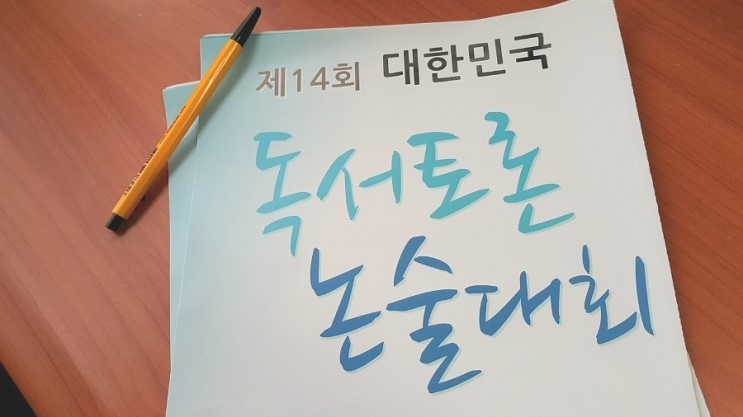 제14회 대한민국
독서토론
논술대회